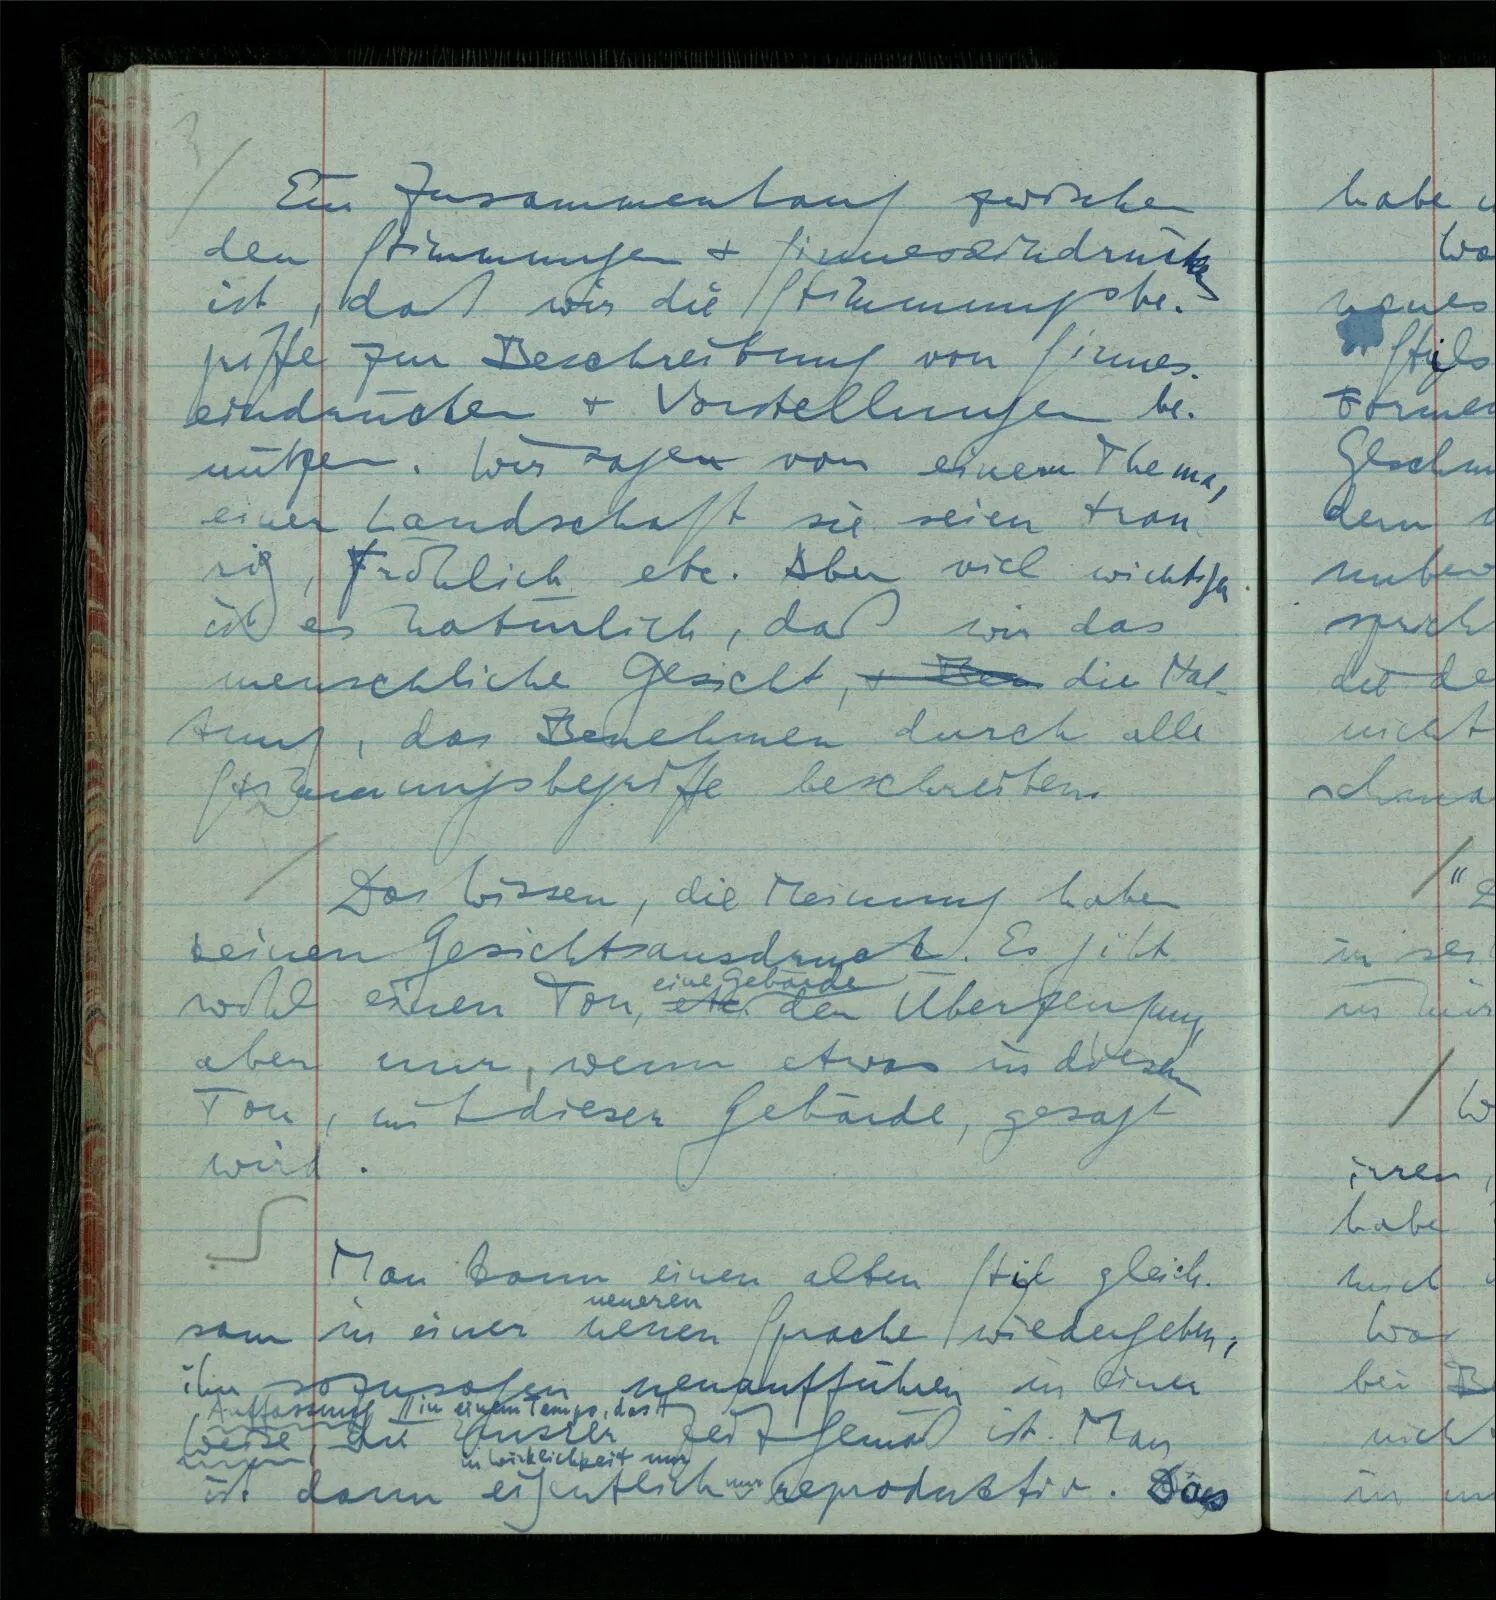 3
Ein Zusammenhang zwischen
den Stimmungen + Sinneseindrücken
ist, daß wir die Stimmungsbe-
griffe zur Beschreibung von Sinnes-
eindrücken + Vorstellungen be-
nützen. Wir sagen von einem Thema,
einer Landschaft sie seien trau
rig, fröhlich etc. Aber viel wichtiger
ist es natürlich, daß wir das
menschliche Gesicht, + Ben die Hal-
tung, das Benehmen durch alle
Stimmungsbegriffe beschreiben.
Das Wissen, die Meinung haben
keinen Gesichtsausdruck. Es gibt
eine Gebärde
wohl einen Ton, etc. der Überzeugung,
aber nur, wenn etwas in diesem
Ton, mit dieser Gebärde, gesagt
wird.
Man kann einen alten Stil gleich-
neueren
sam in einer neuen Sprache wiedergeben,
ihn sozusagen neu aufführen in einer
Auffassung // in einem Tempo, das //
Weise, die unsrer Zeit gemäß ist. Man
in Wirklichkeit nur
ist dann eigentlich nur reproduktiv. Das
habe
neues
Stils
Formen
Geschm
dern
unbew
sprich
die de
nicht
"D
in sei
irren,
habe
mich
War
bei B
nich
in